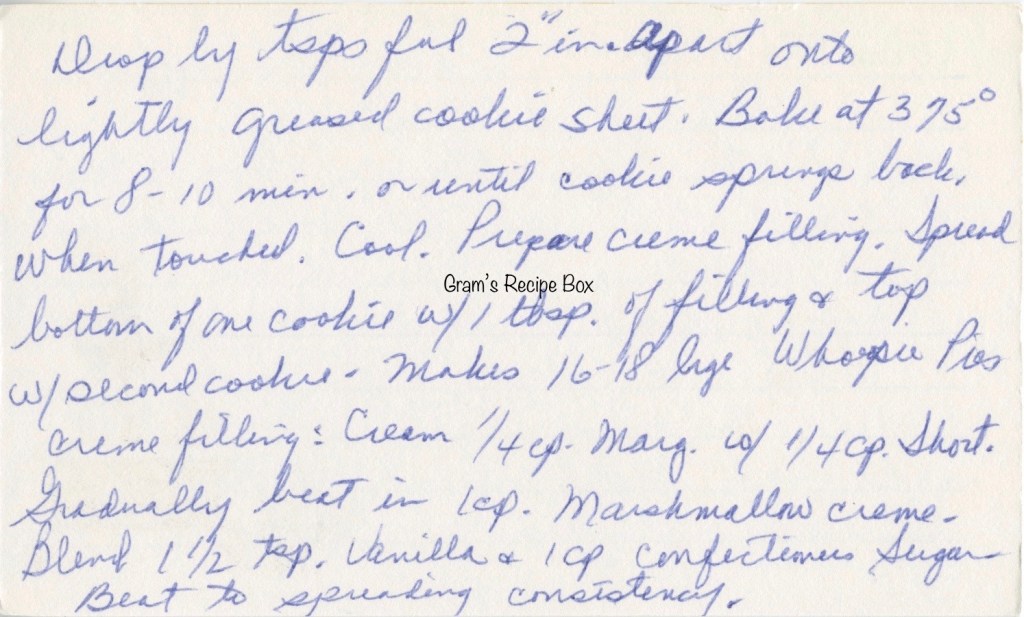 Drop by tsps ful 2" in. apart onto
lightly greased cookie sheet. Bake at 375°
for 8-10 min. or until cookie springs back,
when touched. Cool. Prepare creme filling. Spread
Gram's Recipe Box
bottom of one cookie w/ 1 tbsp. of filling & top
w/ second cookie - Makes 16-18 lrge Whoopie Pies
creme filling: Cream 1/4 cp. Marg. w/ 1/4 cp. Short.
Gradually beat in 1 cp. Marshmallow creme.
Blend 1 1/2 tsp. Vanilla & 1 cp confectioners Sugar
Beat to spreading consistency.